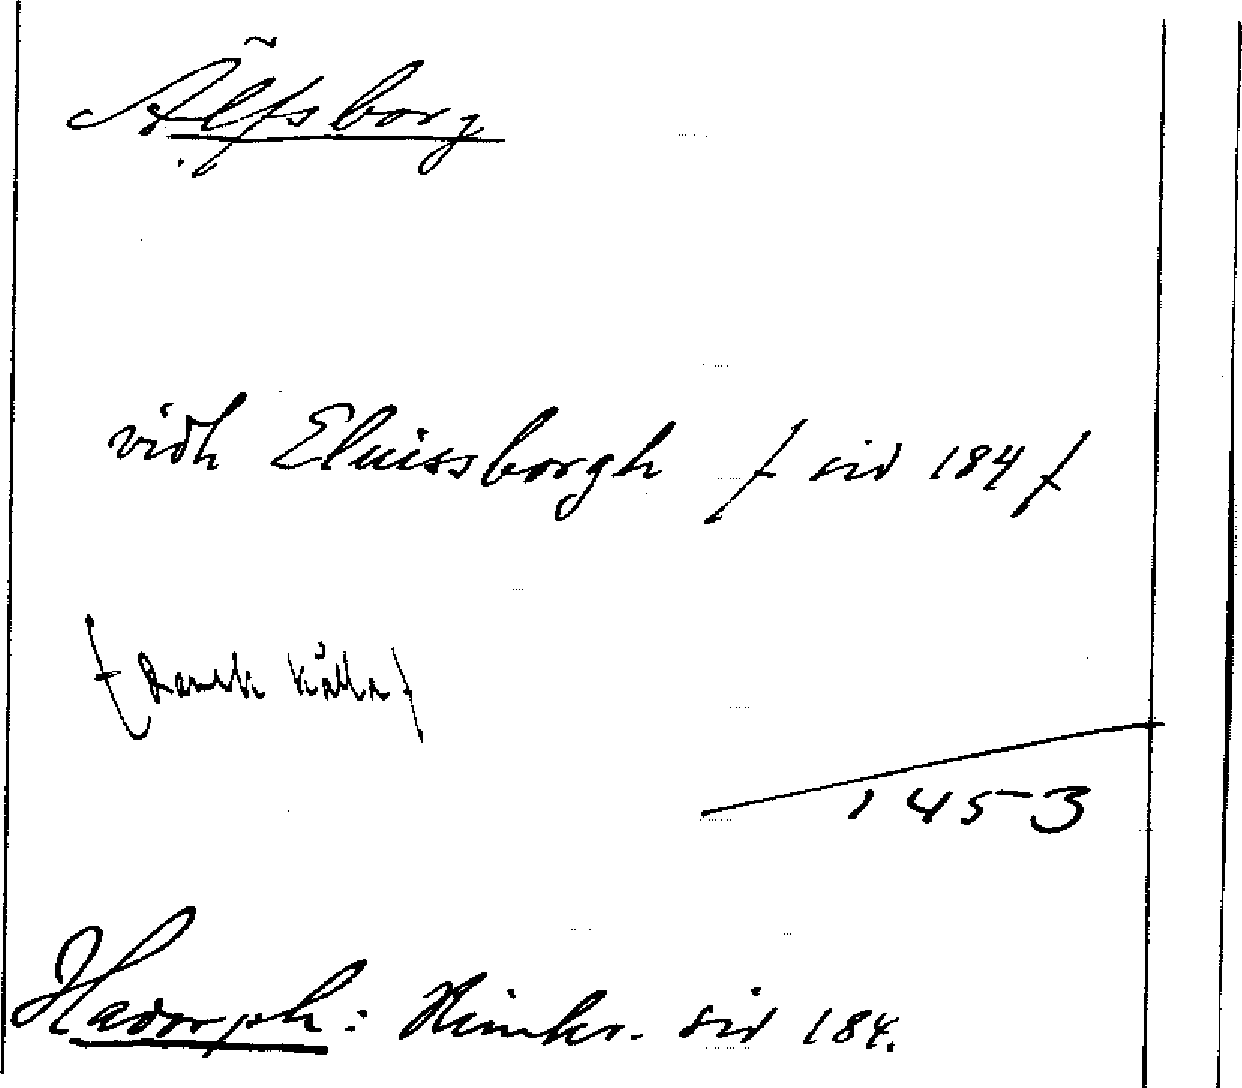 Älfsborg
vidh Eluissborgh / sid 184 /
(Dansk källa)
1453
Hadorph: Rimkr. sid 184.